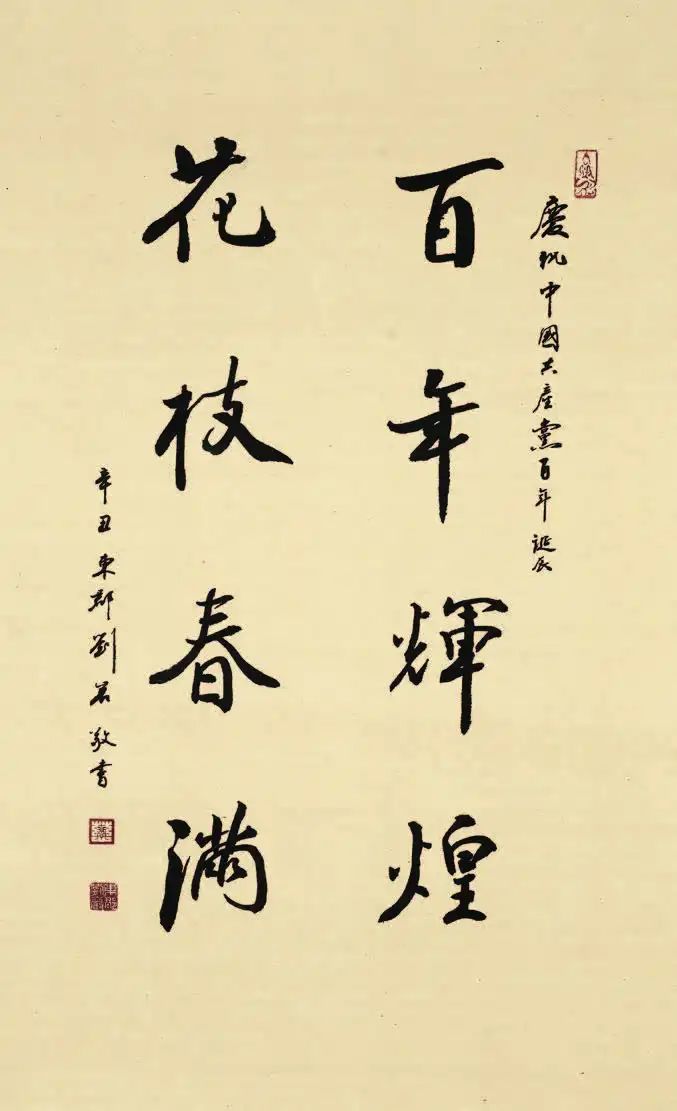 慶祝中國共產黨百年誕辰
百年輝煌
花枝春滿
辛丑東郡劉君敬書